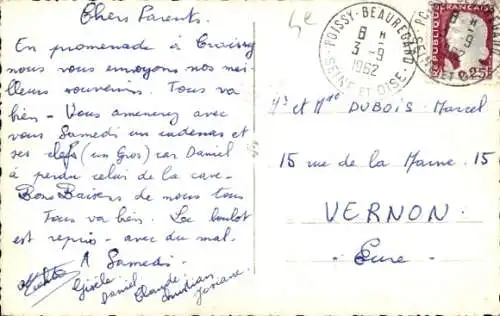 Chers Parents.
En promenade à Croissy
nous vous envoyons nos meil-
leurs souvenirs. Tous va
bien - Vous amenerez avec
vous Samedi un cadenas et
ses clefs (un Gros) car Daniel
à perdu celui de la cave-
Bons Baisers de nous tous
Tous va bien. Le boulot
est repris - avec du mal.
A Samedi.
Gisèle
Daniel
Claude
Christian
Josiane
POISSY-BEAUREGARD
8 H
3-9
1962
SEINE ET OISE
0,25F
Mr et Mme DUBOIS-Marcel
15 rue de la Marne. 15
VERNON.
Eure.